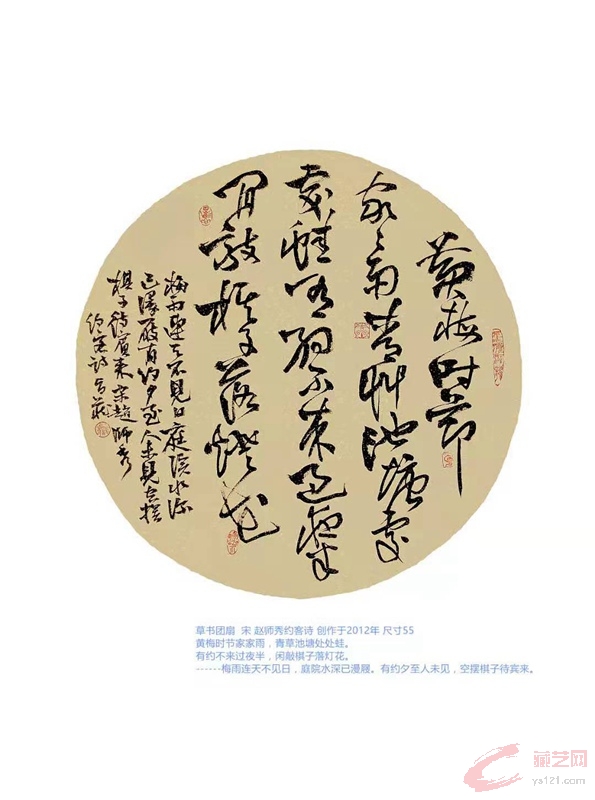 黄梅时节
家々雨青草池塘处
处蛙有约不来过夜半
闲敲棋子落灯花
梅雨连天不见日庭院水深
已漫屐有约夕至人未见空摆
棋子待宾来宋赵师秀
约客诗
草书团扇 宋 赵师秀约客诗 创作于2012年 尺寸55
黄梅时节家家雨，青草池塘处处蛙。
有约不来过夜半，闲敲棋子落灯花。
------梅雨连天不见日，庭院水深已漫屐。有约夕至人未见，空摆棋子待宾来。
藏艺网
ys121.com